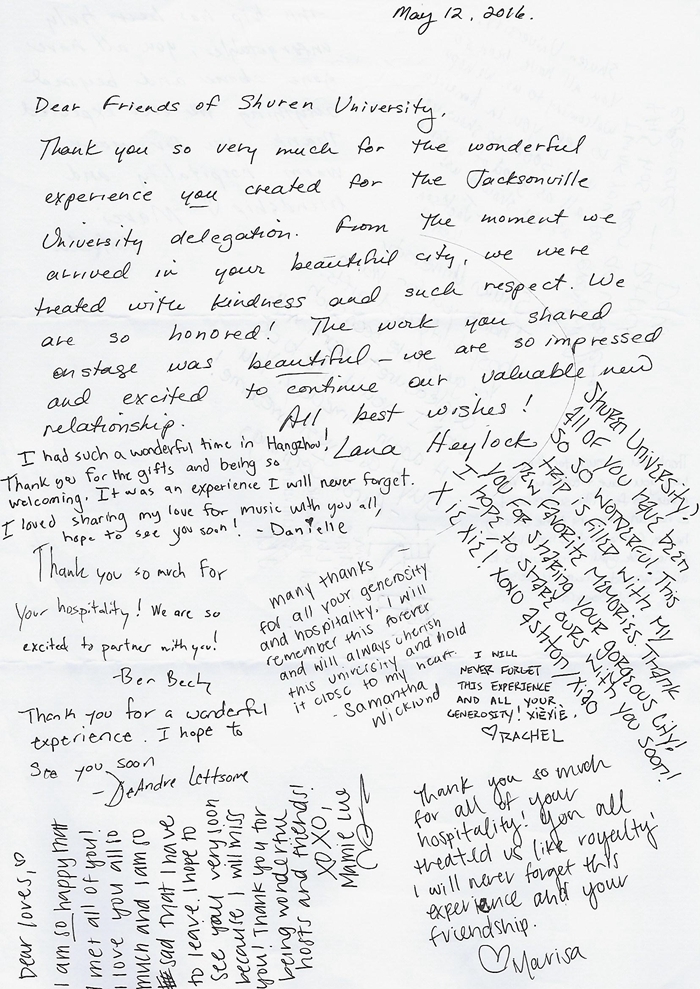 May 12, 2016.
Dear Friends of Shuren University,
Thank you so very much for the wonderful
experience you created for the Jacksonville
University delegation. From the moment we
arrived in your beautiful city, we were
treated with kindness and such respect. We
are so honored! The work you shared
onstage was beautiful – we are so impressed
and excited to continue our valuable new
relationship.
All best wishes!
Lana Heylock
I had such a wonderful time in Hangzhou!
Thank you for the gifts and being so
welcoming. It was an experience I will never forget.
I loved sharing my love for music with you all,
hope to see you soon! - Danielle
Shuren University!
All of you have been
so so wonderful. This
trip is filled with my
new favorite memories. Thank
you for sharing your gorgeous city!
I hope to share ours with you soon!
Xie Xie! xoxo Ashton/Xiao
Thank you so much for
your hospitality! We are so
excited to partner with you!
-Ben Bech
many thanks –
for all your generosity
and hospitality. I will
remember this forever
and will always cherish
this university and hold
it close to my heart.
- Samantha
Wicklund
I WILL
NEVER FORGET
THIS EXPERIENCE
AND ALL YOUR
GENEROSITY! XIÈXIÈ.
♡RACHEL
Thank you for a wonderful
experience. I hope to
see you soon
- DeAndre Lettsome
Dear loves, ♡
I am so happy that
I met all of you!
I love you all so
much and I am so
sad that I have
to leave. I hope to
see you very soon
because I will miss
you! Thank you for
being wonderful
hosts and friends!
XOXO,
Mamie Lue
Thank you so much
for all of your
hospitality! You all
treated us like royalty!
I will never forget this
experience and your
friendship.
♡Marisa